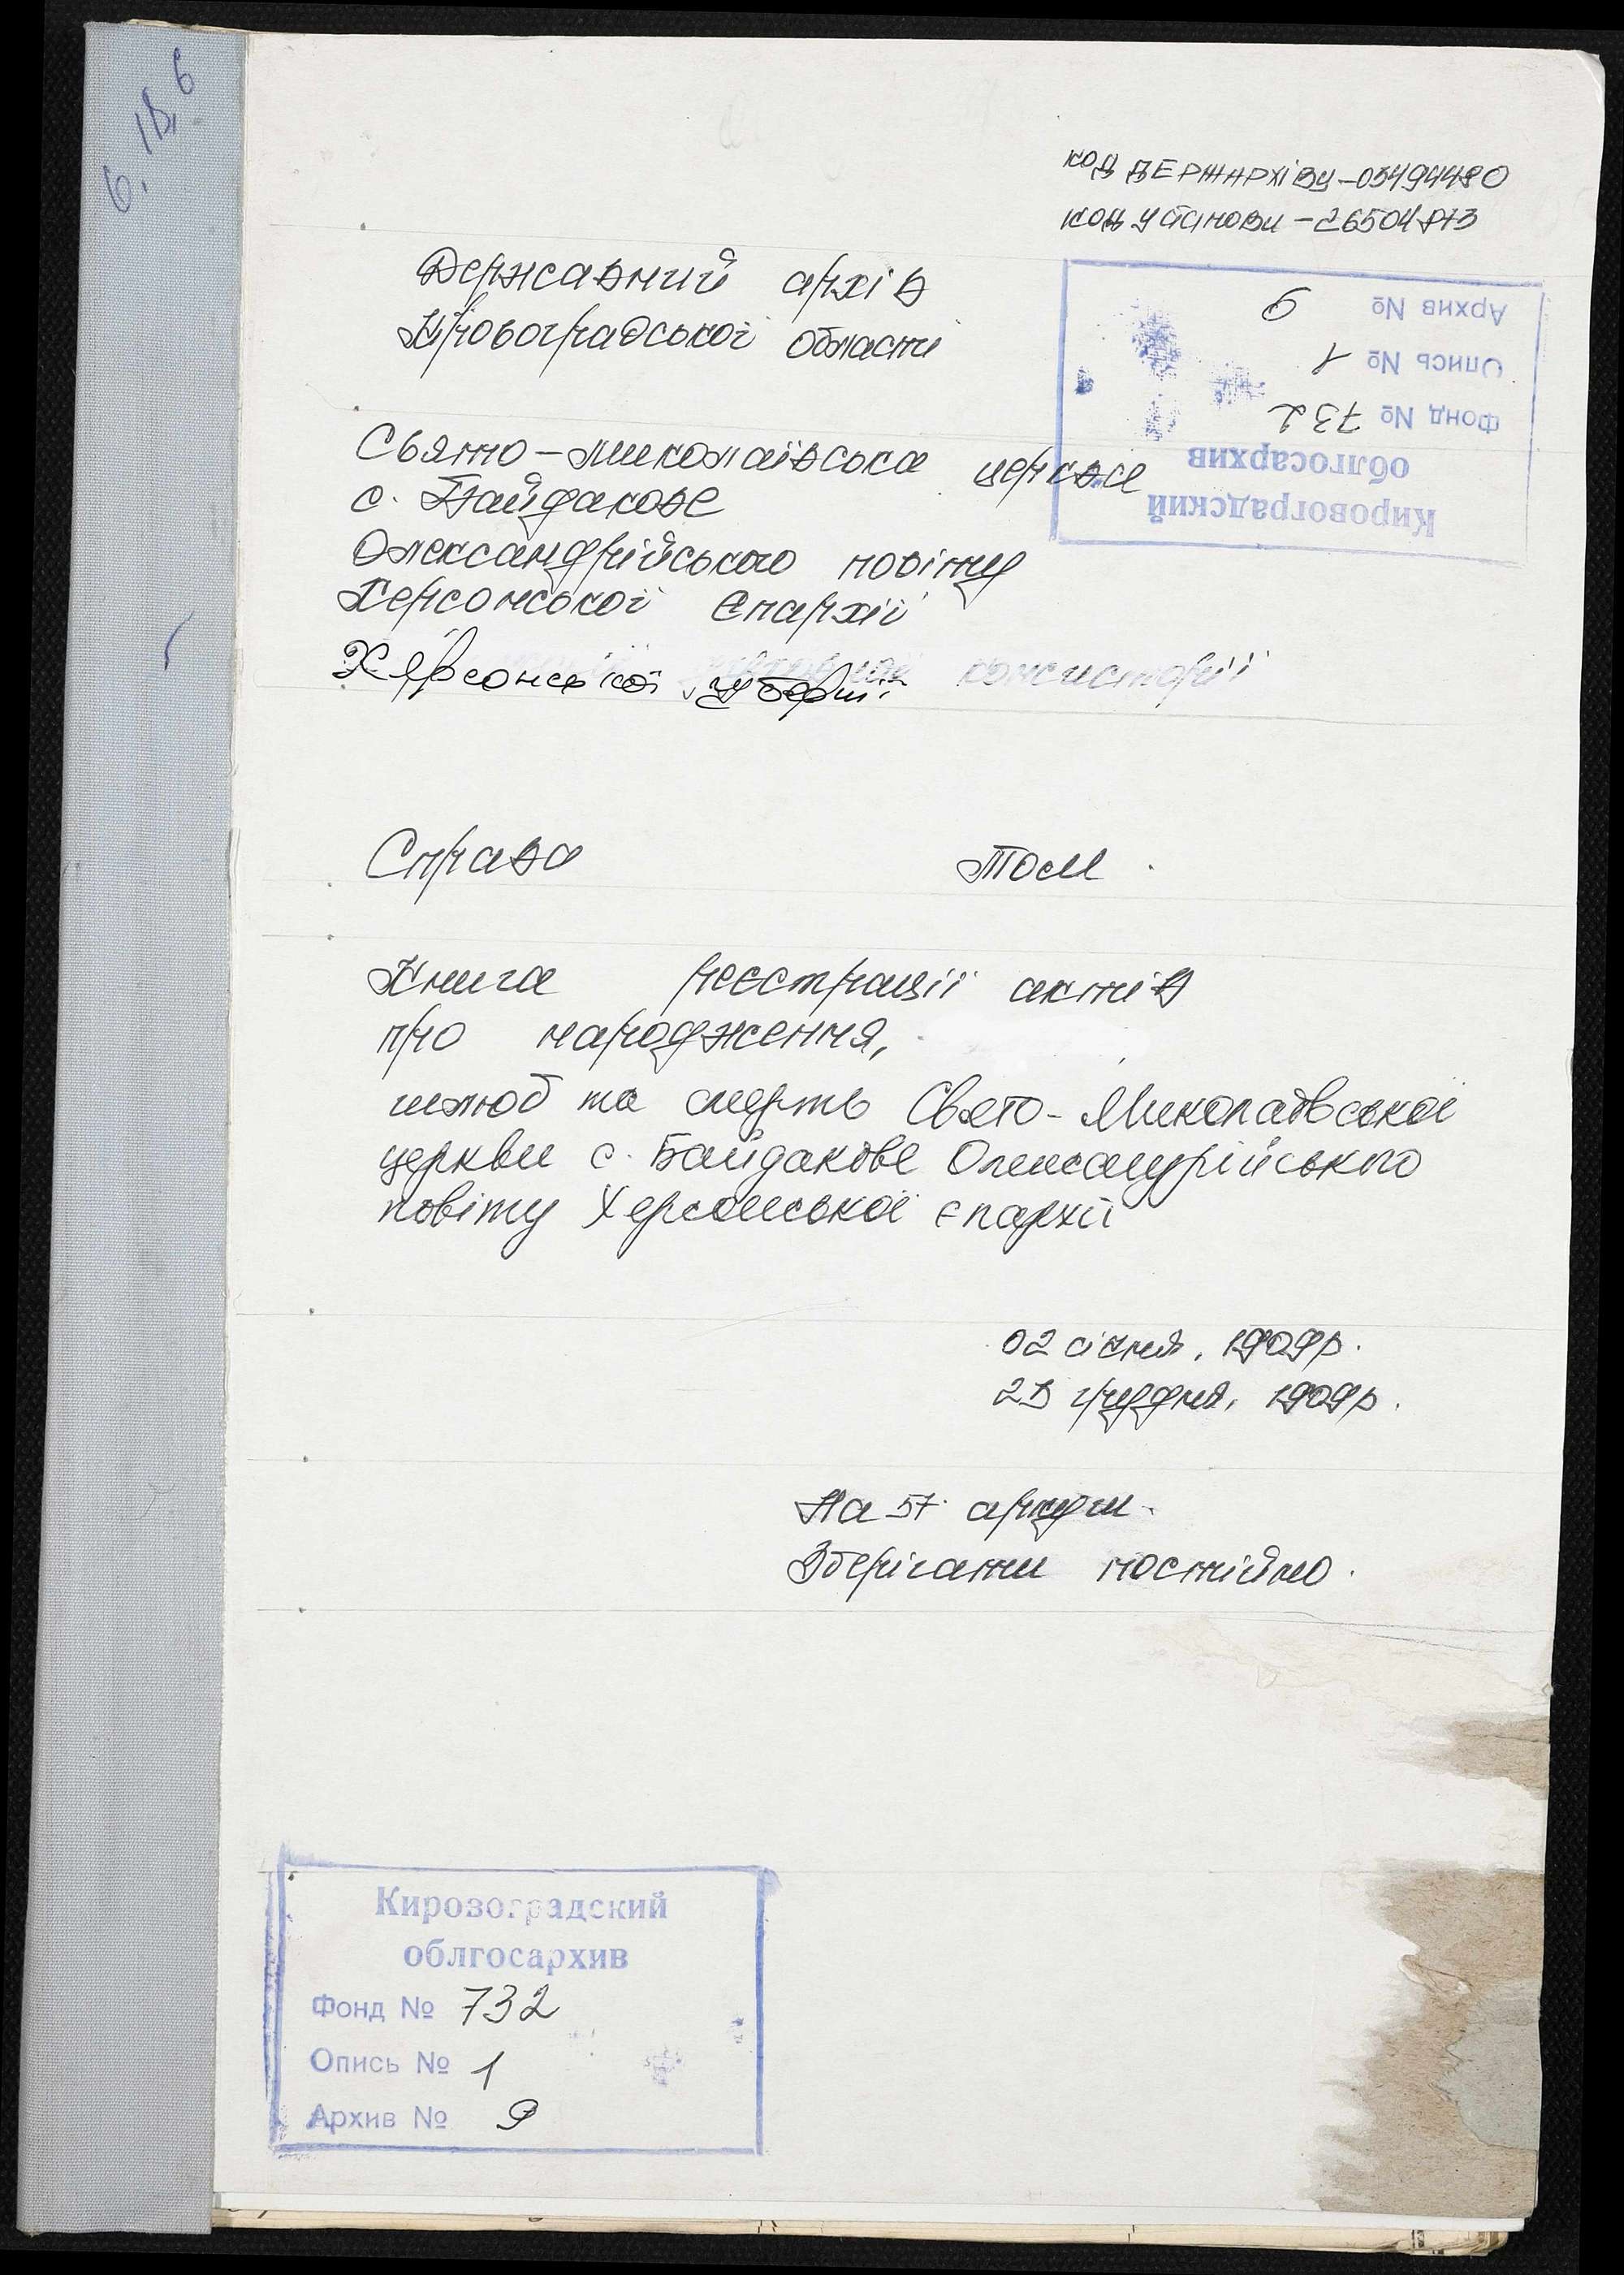 код ДЕРЖАРХІВУ – 03494480
код установи – 26504873
Державний архів
Кіровоградської області
Кировоградский
облгосархив
Фонд № 732
Опись № 1
Архив № 9
Свято-Миколаївська церква
с. Байдакове
Олександрійського повіту
Херсонської Єпархії
Херсонської губернії консисторії
Справа Том
Книга реєстрації актів
про народження,
шлюб та смерть Свято-Миколаївської
церкви с. Байдакове Олександрійського
повіту Херсонської єпархії
02 січня, 1909р.
23 грудня, 1909р.
На 57 аркуш.
Зберігати постійно.
Кировоградский
облгосархив
Фонд № 732
Опись № 1
Архив № 9